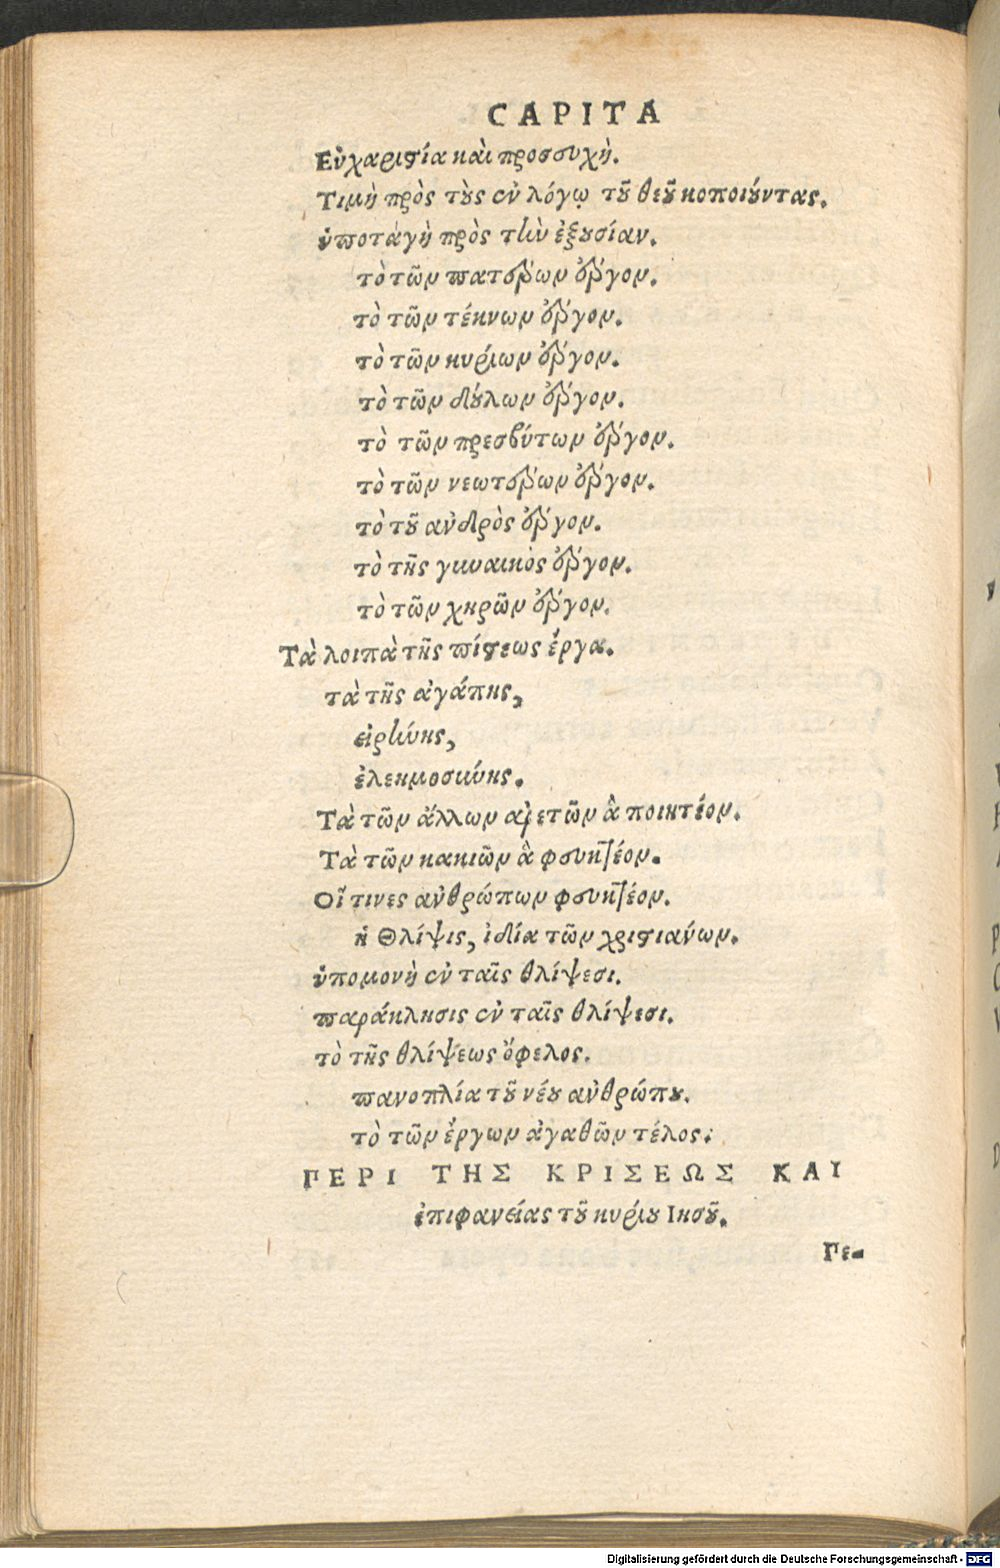 CAPITA
Εὐχαριστία καὶ προσευχὴ.
Τιμὴ πρὸς τοὺς ἐν λόγῳ τοῦ θεοῦ κοποιούντας.
ὑποταγὴ πρὸς τὴν ἐξουσίαν.
τὸ τῶν πατέρων ἔργον.
τὸ τῶν τέκνων ἔργον.
τὸ τῶν κυρίων ἔργον.
τὸ τῶν δούλων ἔργον.
τὸ τῶν πρεσβύτων ἔργον.
τὸ τῶν νεωτέρων ἔργον.
τὸ τοῦ ανδρὸς ἔργον.
τὸ τῆς γυναικὸς ἔργον.
τὸ τῶν χηρῶν ἔργον.
Τὰ λοιπὰ τῆς πίστεως ἔργα.
τὰ τῆς ἀγάπης,
εἰρήνης,
ἐλεημοσύνης.
Τὰ τῶν ἄλλων αρετῶν ἃ ποιητέον.
Τὰ τῶν κακιῶν ἃ φευκτέον.
Οἵ τινες ανθρώπων φευκτέον.
ἡ Θλίψις, ἰδία τῶν χριστιανών.
ὑπομονὴ ἐν ταῖς θλίψεσι.
παράκλησις ἐν ταῖς θλίψεσι.
τὸ τῆς θλίψεως ὄφελος.
πανοπλία τοῦ νέου ανθρώπου.
τὸ τῶν ἔργων ἀγαθῶν τέλος.
ΠΕΡΙ ΤΗΣ ΚΡΙΣΕΩΣ ΚΑΙ
ἐπιφανείας τοῦ κυρίου Ιησοῦ.
Γε-
Digitalisierung gefördert durch die Deutsche Forschungsgemeinschaft - DFG